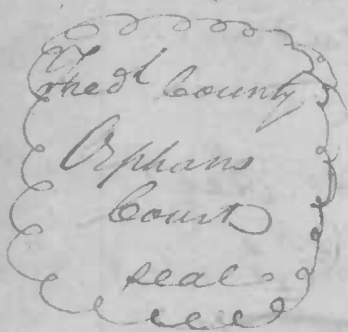 County
Orphans
Court
seal